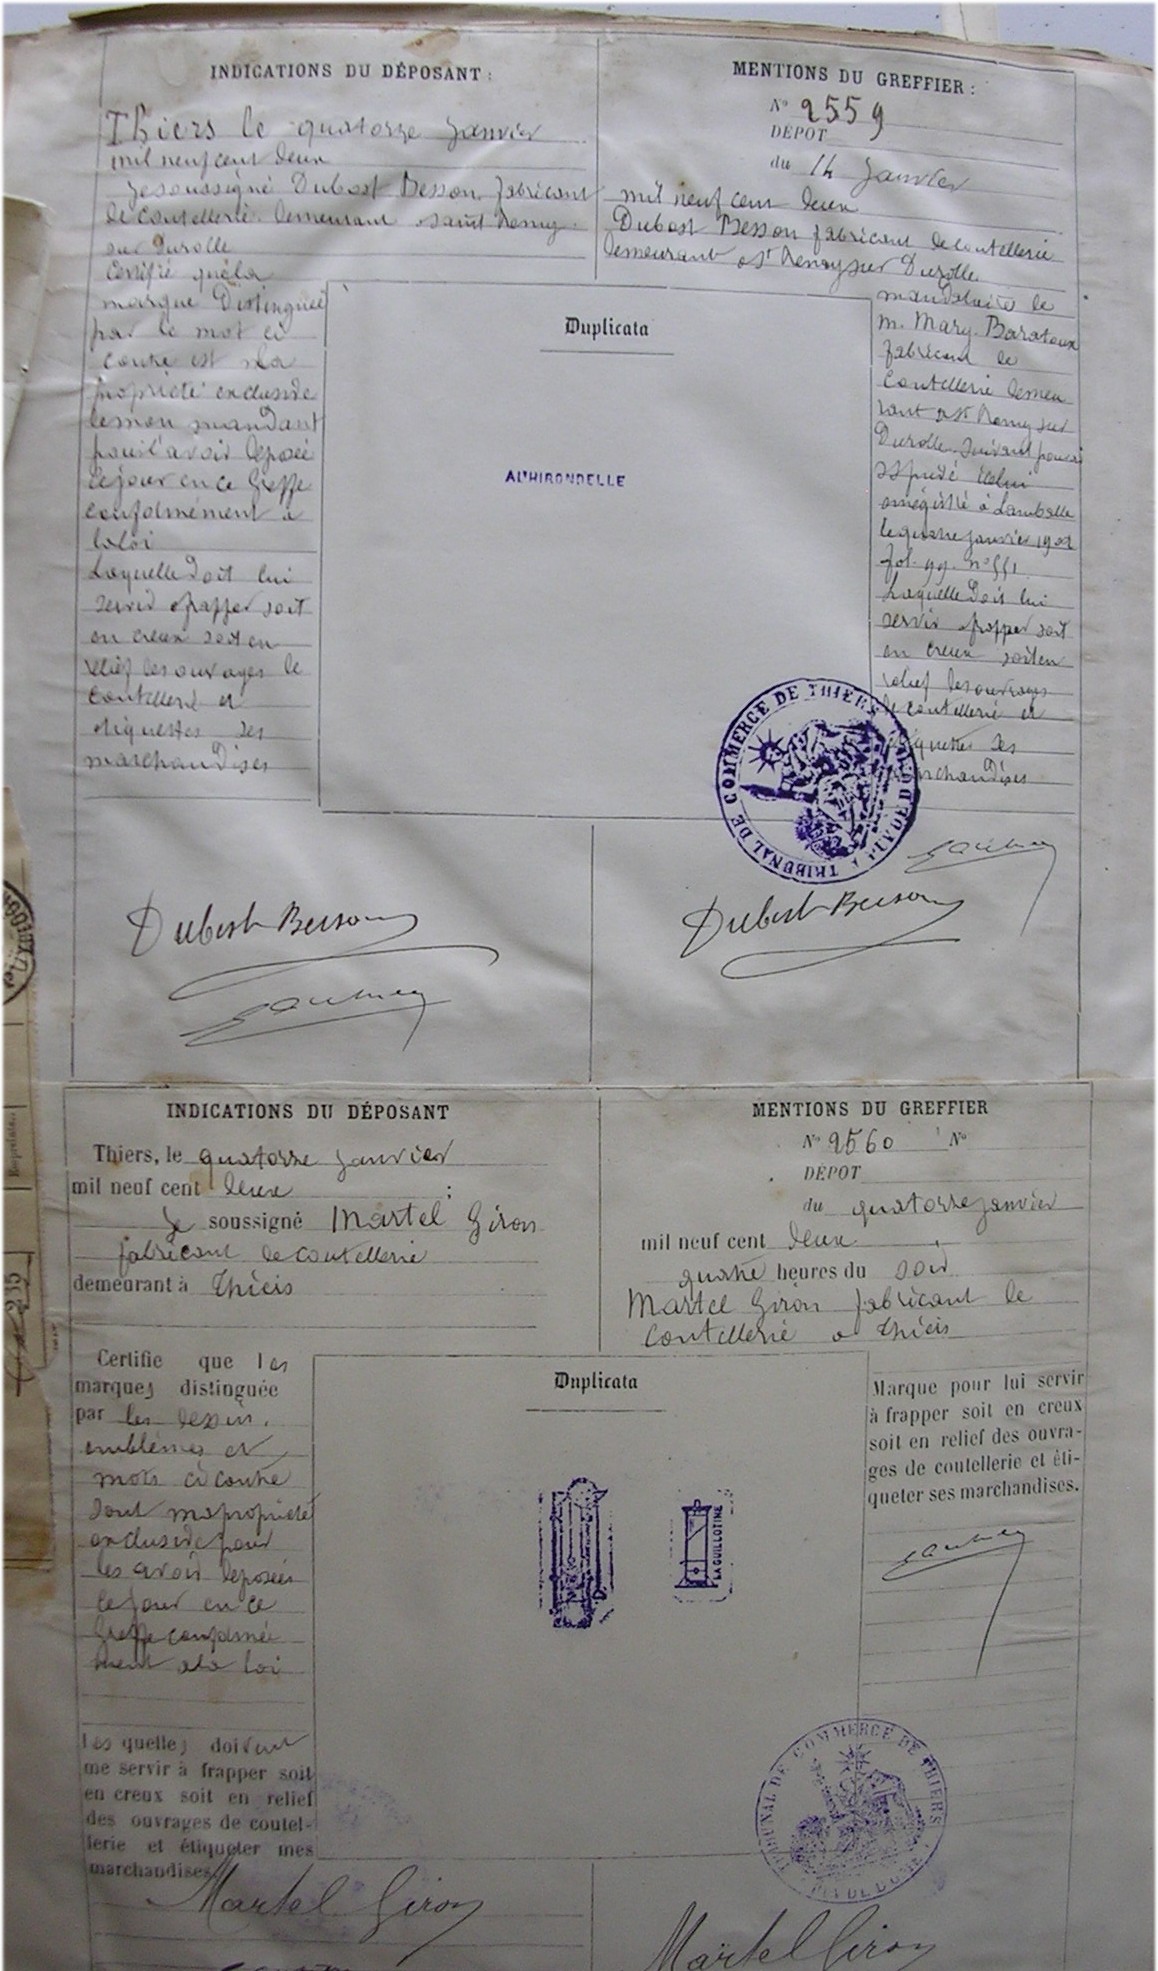 INDICATIONS DU DÉPOSANT :
Thiers le quatorze Janvier
mil neuf cent deux
Je soussigné Dubost Besson, fabricant
de coutellerie demeurant saint Remy
sur Durolle
Certifie que la
marque Distinguée
par le mot ci
contre est la
propriété exclusive
de mon mandant
pour l'avoir déposée
ce jour en ce Greffe
conformément à
la loi
Laquelle Doit lui
servir a frapper soit
en creux soit en
relief les ouvrages de
Coutellerie et
etiquettes ses
marchandises
MENTIONS DU GREFFIER :
No 2559
DÉPOT
du 14 Janvier
mil neuf cent deux
Dubost Besson fabricant de coutellerie
demeurant a St Remy sur Durolle
mandataire de
M. Mary-Baratoux
fabricant de
Coutellerie demeu
rant a St Remy sur
Durolle suivant pouvoir
enregistré à Lamballe
le quatre Janvier 1902
fol. 99. No 551
Laquelle Doit lui
servir a frapper soit
en creux soit en
relief les ouvrages
de coutellerie et
etiquettes ses
marchandises
Duplicata
AL'HIRONDELLE
TRIBUNAL DE COMMERCE DE THIERS
PUY DE DOME
Dubost Besson
Dubost Besson
INDICATIONS DU DÉPOSANT
Thiers, le quatorze Janvier
mil neuf cent deux
Je soussigné Martel Giron
fabricant de coutellerie
demeurant à Thiers
Certifie que les
marques distinguée
par les dessin,
emblèmes et
mots ci contre
sont ma propriété
exclusive pour
les avoir déposées
ce jour en ce
Greffe conformé
ment a la loi
Les quelles doivent
me servir à frapper soit
en creux soit en relief
des ouvrages de coutel-
lerie et étiqueter mes
marchandises.
Martel Giron
MENTIONS DU GREFFIER
No 2560 No
DÉPOT
du quatorze janvier
mil neuf cent deux
quatre heures du soir
Martel Giron fabricant de
Coutellerie a Thiers
Duplicata
LA GUILLOTINE
Marque pour lui servir
à frapper soit en creux
soit en relief des ouvra-
ges de coutellerie et éti-
queter ses marchandises.
TRIBUNAL DE COMMERCE DE THIERS
PUY DE DOME
Martel Giron